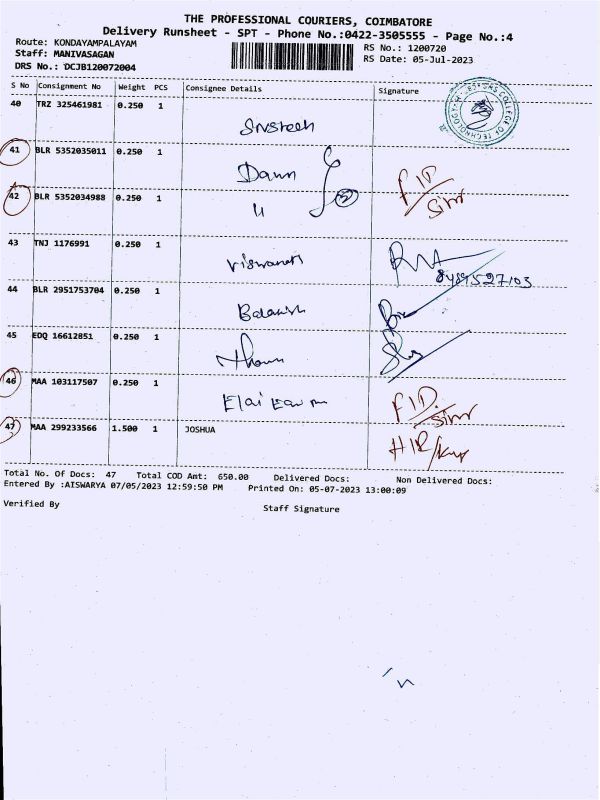 THE PROFESSIONAL COURIERS, COIMBATORE
Delivery Runsheet - SPT - Phone No.:0422-3505555 - Page No.:4
Route: KONDAYAMPALAYAM
Staff: MANIVASAGAN
DRS No.: DCJB120072004
RS No.: 1200720
RS Date: 05-Jul-2023
S No Consignment No Weight PCS Consignee Details Signature
40 TRZ 325461981 0.250 1
41 BLR 5352035011 0.250 1
42 BLR 5352034988 0.250 1
43 TNJ 1176991 0.250 1
8489527103
44 BLR 2951753704 0.250 1
45 EDQ 16612851 0.250 1
46 MAA 103117507 0.250 1
47 MAA 299233566 1.500 1 JOSHUA
Total No. Of Docs: 47 Total COD Amt: 650.00 Delivered Docs: Non Delivered Docs:
Entered By :AISWARYA 07/05/2023 12:59:50 PM Printed On: 05-07-2023 13:00:09
Verified By Staff Signature